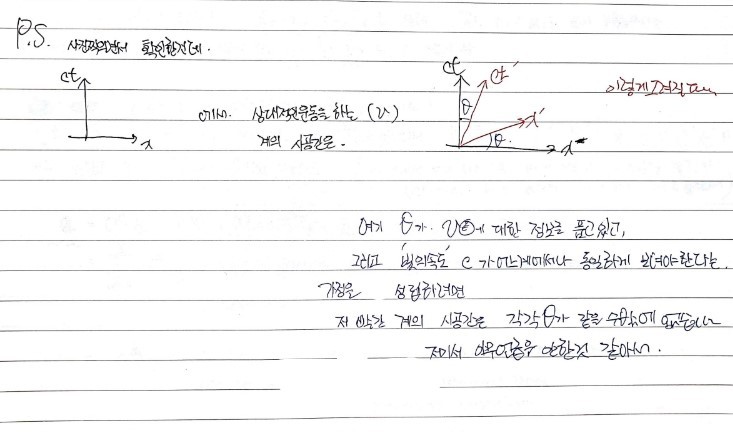 P.S. 사진찍으면서 확인한건데.
ct
x
에서. 상대적인운동을 하는 (v)
계의 시공간은.
ct
ct'
θ
x'
θ.
x
이렇게그려질
여기 θ가. v에 대한 정보를 품고있고,
그리고 '빛의속도' c가 어느계에서나 동일하게 보여야한다는.
가정을 성립하려면
저 빨간 계의 시공간은 각각 θ가 같을 수밖에
저기서 안한것 같아서.